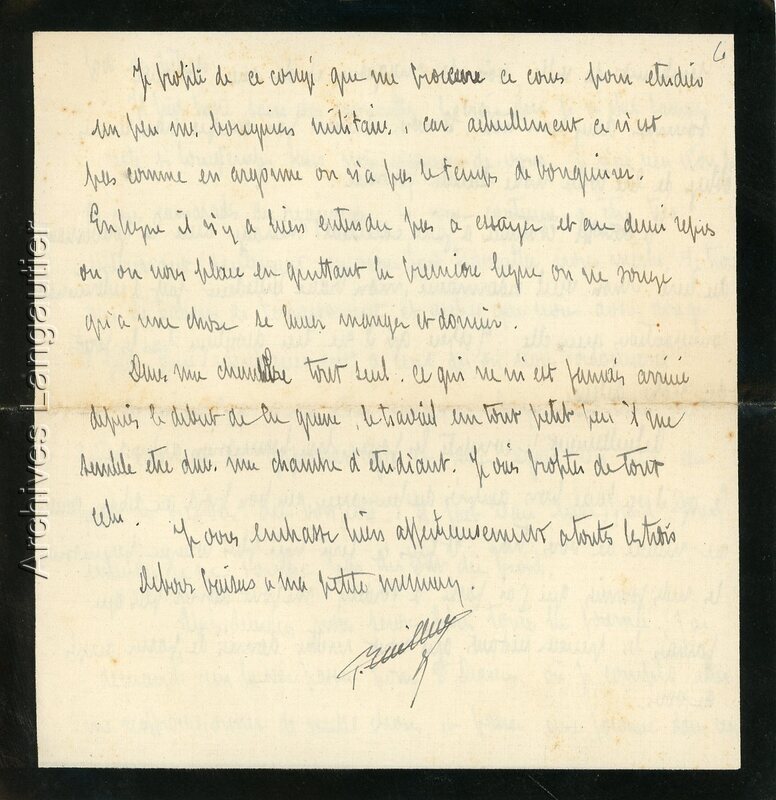 6
Je profite de ce congé que me procure ce cours pour etudier
un peu mes bouquins militaires, car actuellement ce n'est
pas comme en argonne on n'a pas le temps de bouquiner.
En ligne il n'y a bien entendu pas a essayer et au demi repos
ou on nous place en quittant la premiere ligne on ne songe
qu'a une chose se laver manger et dormir.
Dans ma chambre tout seul. ce qui ne m'est jamais arrivé
depuis le debut de la guerre, je travaille un tout petit peu il me
semble etre dans une chambre d'etudiant. Je vais profiter de tout
cela. Je vous embrasse bien affectueusement a toutes les trois
De bons baisers a ma petite
Archives Langautier